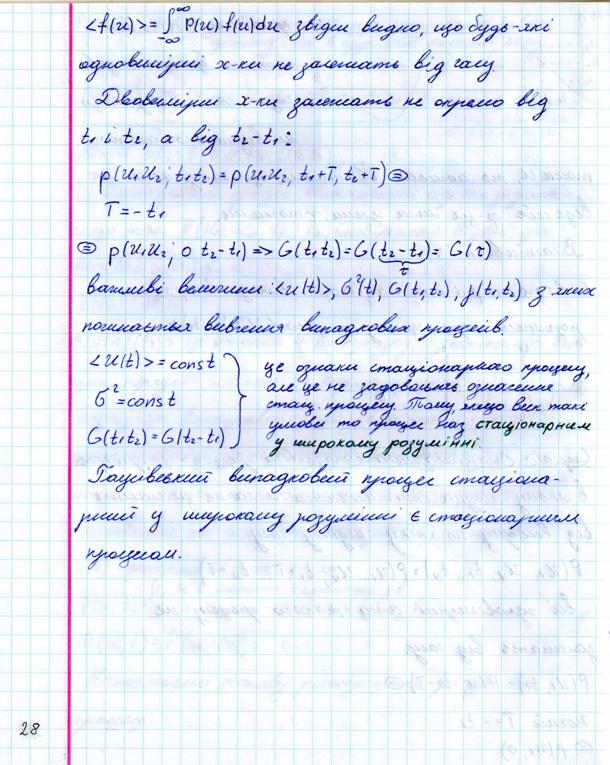 <f(u)> = ∫_{-∞}^{∞} P(u) f(u) du звідси видно, що будь-які
одновимірні х-ки не залежать від часу.
Двовимірні х-ки залежать не окремо від
t₁ і t₂, а від t₂-t₁:
p(u₁u₂; t₁t₂) = p(u₁u₂, t₁+T, t₂+T) ⊜
T = -t₁
⊜ p(u₁u₂; 0 t₂-t₁) => G(t₁t₂) = G(t₂-t₁) = G(τ)
τ
важливі величини: <u(t)>, σ²(t), G(t₁t₂), f(t₁t₂) з яких
починається вивчення випадкових процесів.
<u(t)> = const
σ² = const
G(t₁t₂) = G(t₂-t₁)
це ознаки стаціонарного процесу,
але це не задовольнь означення
стац. процесу. Тому, якщо вик такі
умови то процес наз стаціонарним
у широкому розумінні.
Гаусівський випадковий процес стаціона-
рний у широкому розумінні є стаціонарним
процесом.
28